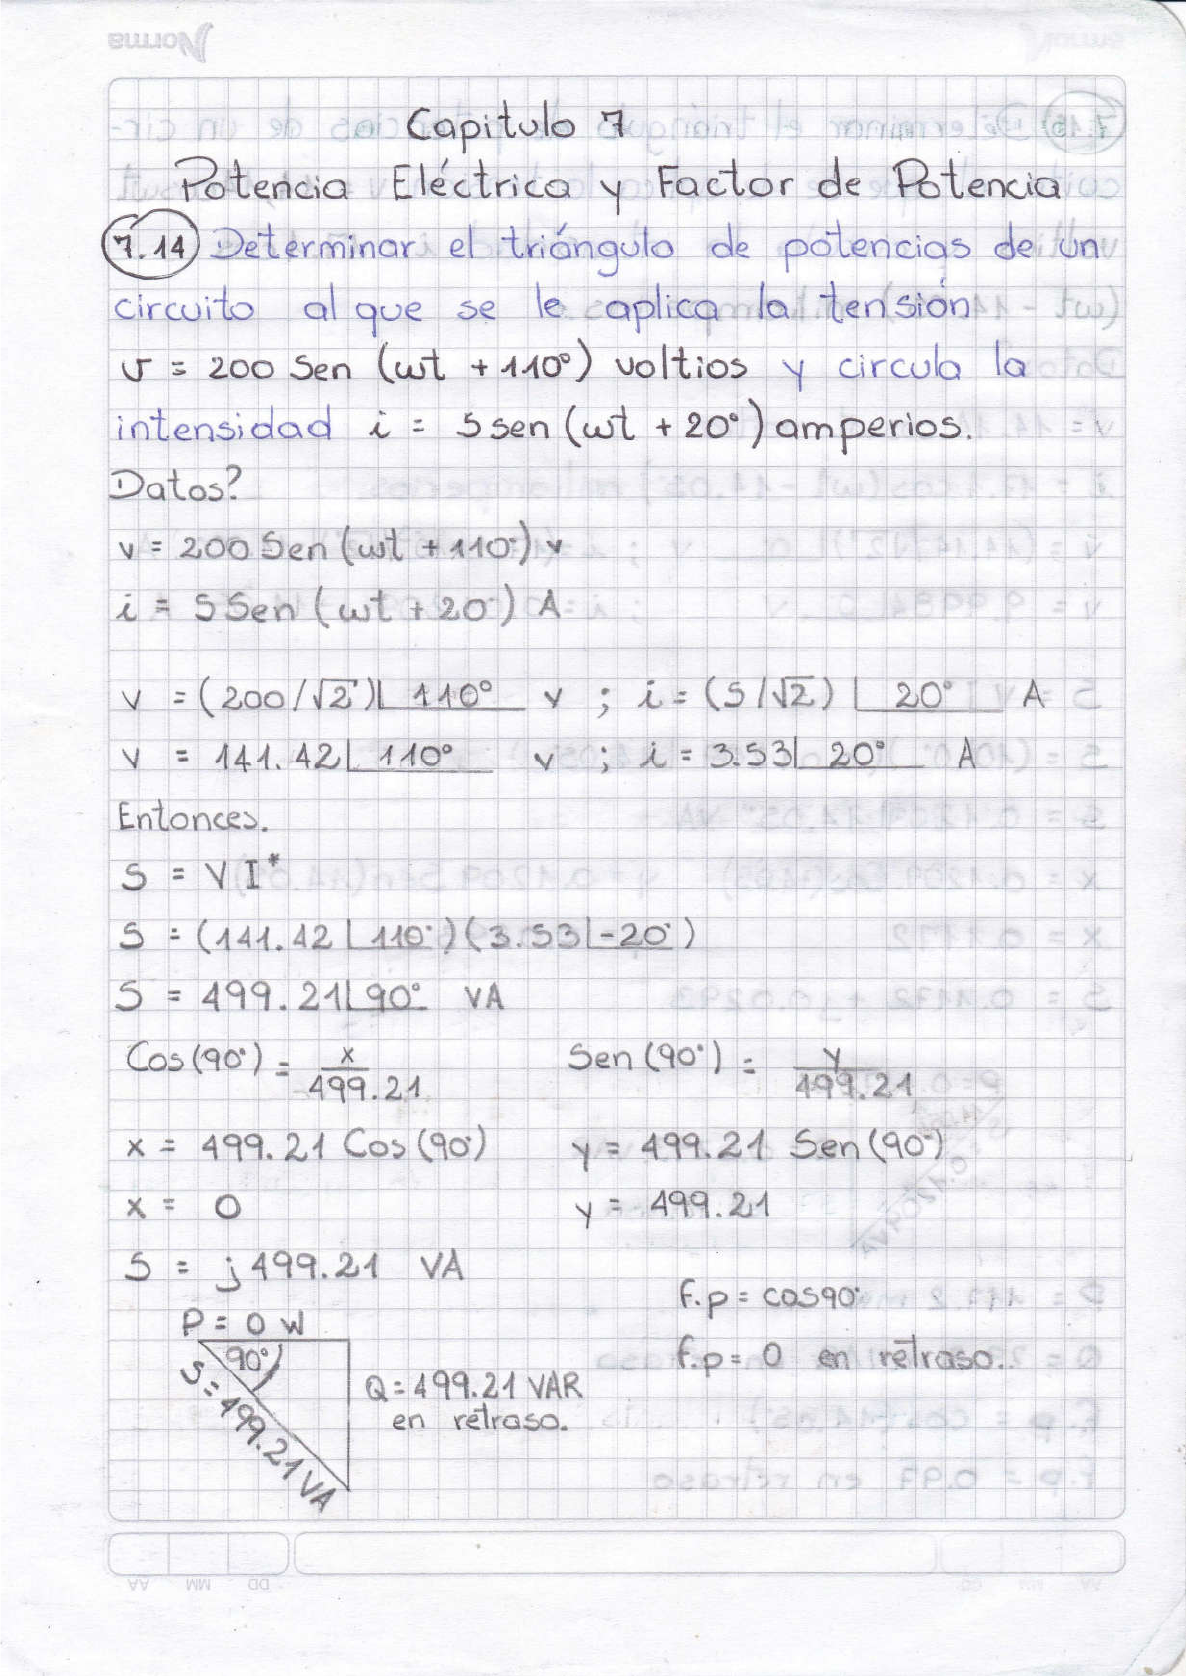 Norma
Capitulo 7
Potencia Eléctrica y Factor de Potencia
7.14 Determinar el triángulo de potencias de un
circuito al que se le aplica la tensión
v = 200 Sen (wt + 110°) voltios y circula la
intensidad i = 5 sen (wt + 20°) amperios.
Datos?
v = 200 Sen (wt + 110°) v
i = 5 Sen (wt + 20°) A
V = (200/√2)∟110° v ; i = (5/√2)∟20° A
V = 141.42∟110° v ; i = 3.53∟20° A
Entonces.
S = V I*
S = (141.42∟110°)(3.53∟-20°)
S = 499.21∟90° VA
Cos(90°) = x/499.21 Sen(90°) = y/499.21
x = 499.21 Cos(90°) y = 499.21 Sen(90°)
x = 0 y = 499.21
S = j499.21 VA
f.p = cos90°
P = 0 W
f.p = 0 en retraso.
90°
S = 499.21 VA
Q = 499.21 VAR
en retraso.